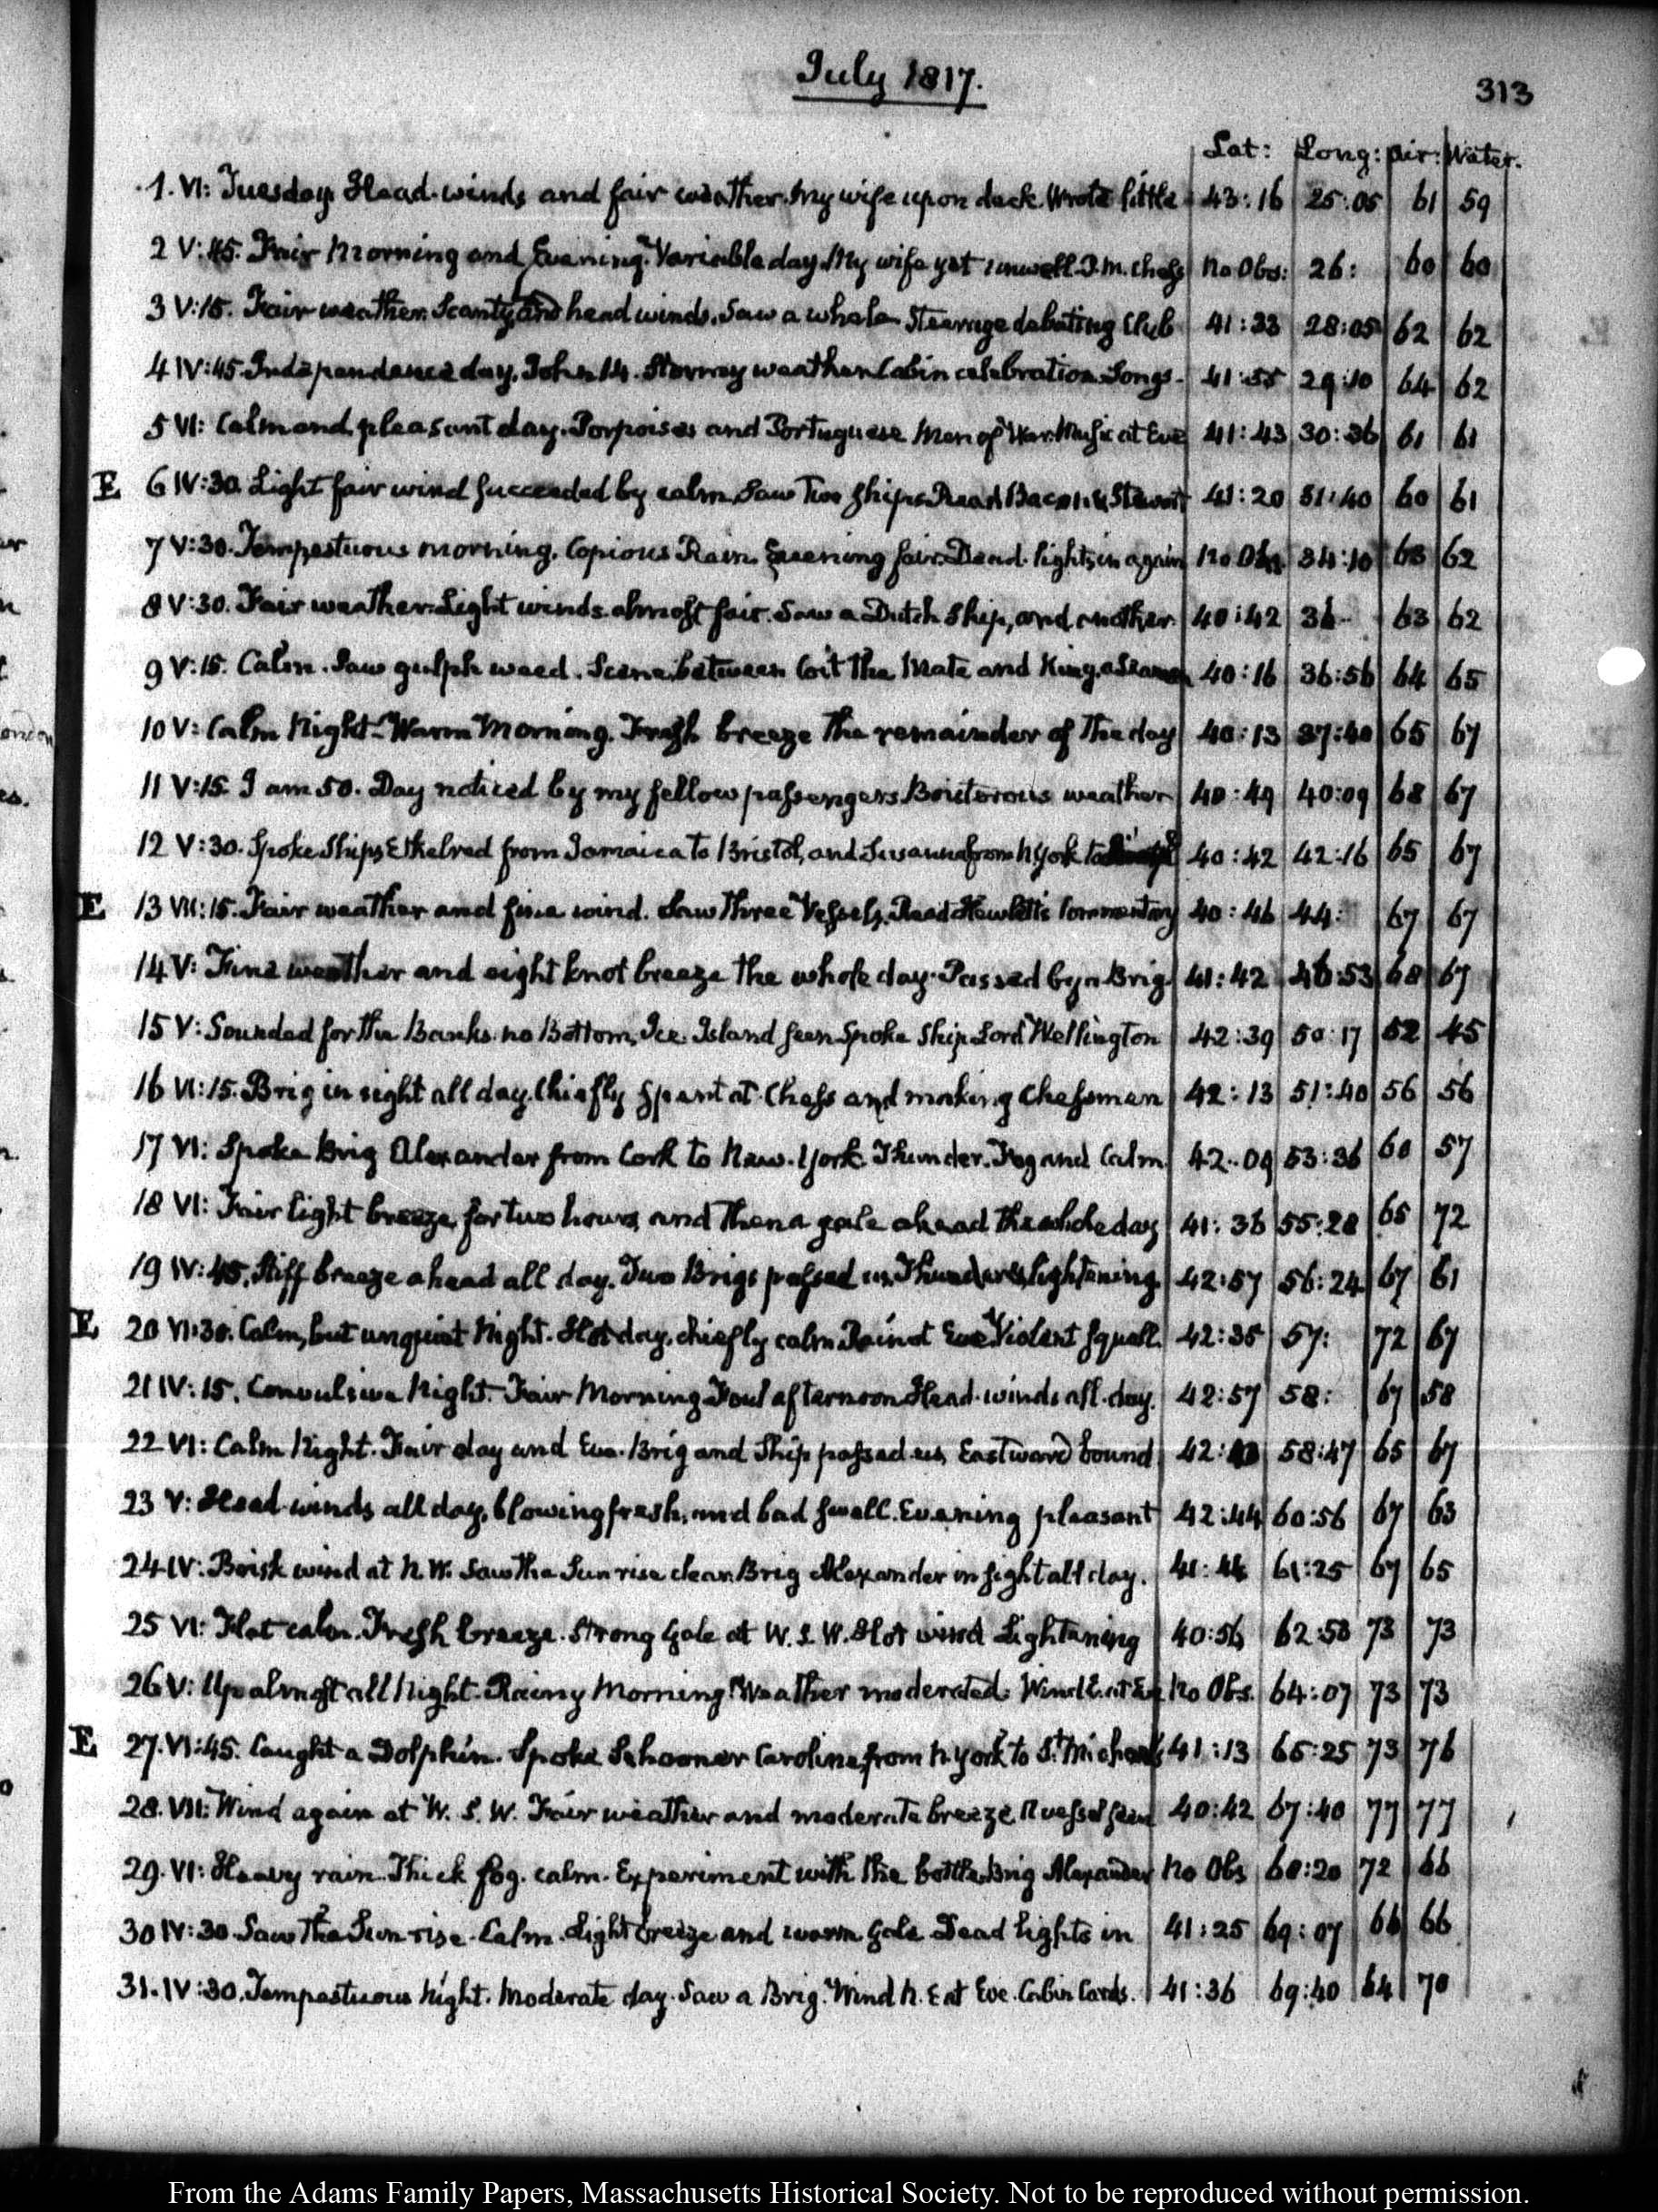 July 1817.
313
Lat: Long: Air: Water.
1. VI: Tuesday. Head-winds and fair weather. My wife upon deck. Wrote little 43:16 25:05 61 59
2 V:45. Fair Morning and Evening. Variable day. My wife yet unwell. J. M. chess No Obs: 26: 60 60
3 V:15. Fair weather. Scanty and head winds. Saw a whale. Steerage debating Club 41:33 28:05 62 62
4 IV:45. Independence day. John 14. Stormy weather. Cabin celebration. Songs. 41:55 29:10 64 62
5 VI: Calm and pleasant day. Porpoises and Portuguese Men of War. Musick at Eve 41:43 30:36 61 61
E 6 IV:30. Light fair wind succeeded by calm. Saw Two Ships. Read Bacon & Stewart 41:20 31:40 60 61
7 V:30. Tempestuous morning. Copious Rain. Evening fair. Dead-lights in again No Obs. 34:10 63 62
8 V:30. Fair weather. Light winds almost fair. Saw a Dutch Ship, and another. 40:42 36 63 62
9 V:15. Calm. Saw gulph weed. Scene between Coit the Mate and King, a Seaman 40:16 36:56 64 65
10 V: Calm Night. Warm Morning. Fresh breeze the remainder of the day 40:13 37:40 65 67
11 V:15. I am 50. Day noticed by my fellow passengers. Boisterous weather 40:49 40:09 68 67
12 V:30. Spoke Ships Ethelred from Jamaica to Bristol, and Susanna from N. York to 40:42 42:16 65 67
E 13 VII:15. Fair weather and fine wind. Saw Three Vessels. Read Hewlett's Commentary 40:46 44: 67 67
14 V: Fine weather and eight knot breeze the whole day. Passed by a Brig. 41:42 46:53 68 67
15 V: Sounded for the Banks. no Bottom. Ice-Island seen. Spoke Ship Lord Wellington 42:39 50:17 52 45
16 VI:15. Brig in sight all day. Chiefly spent at Chess and making Chessmen 42:13 51:40 56 56
17 VI: Spoke Brig Alexander from Cork to New-York. Thunder. Fog and Calm 42:09 53:36 60 57
18 VI: Fair light breeze for two hours, and then a gale ahead the whole day 41:36 55:28 65 72
19 IV:45. Stiff breeze ahead all day. Two Brigs passed us. Thunder & lightening. 42:57 56:24 67 61
E 20 VI:30. Calm, but unquiet Night. Hot day, chiefly calm. Rain at Eve. Violent squall. 42:35 57: 72 67
21 IV:15. Convulsive Night. Fair Morning. Foul afternoon. Head-winds all day. 42:57 58: 67 58
22 VI: Calm Night. Fair day and Eve. Brig and Ship passed us, Eastward bound 42: 58:47 65 67
23 V: Head-winds all day, blowing fresh, and bad swell. Evening pleasant 42:44 60:56 67 63
24 IV: Brisk wind at N. W. Saw the Sun rise clear. Brig Alexander in sight all day. 41:44 61:25 67 65
25 VI: Flat calm. Fresh breeze. Strong Gale at W. S. W. Hot wind Lightening 40:56 62:58 73 73
26 V: Up almost all Night. Rainy Morning. Weather moderated. Wind E. at Eve No Obs. 64:07 73 73
E 27. VI:45. Caught a Dolphin. Spoke Schooner Caroline, from N. York to St. Michaels 41:13 65:25 73 76
28. VII: Wind again at W. S. W. Fair weather and moderate breeze. A vessel seen 40:42 67:40 77 77
29. VI: Heavy rain. Thick fog. calm. Experiment with the bottle. Brig Alexander No Obs 68:20 72 66
30 IV:30. Saw The Sun rise. Calm. Light breeze and warm Gale. Dead lights in 41:25 69:07 66 66
31. IV:30. Tempestuous Night. Moderate day. Saw a Brig. Wind N. E at Eve. Cabin Cards. 41:36 69:40 64 70
From the Adams Family Papers, Massachusetts Historical Society. Not to be reproduced without permission.